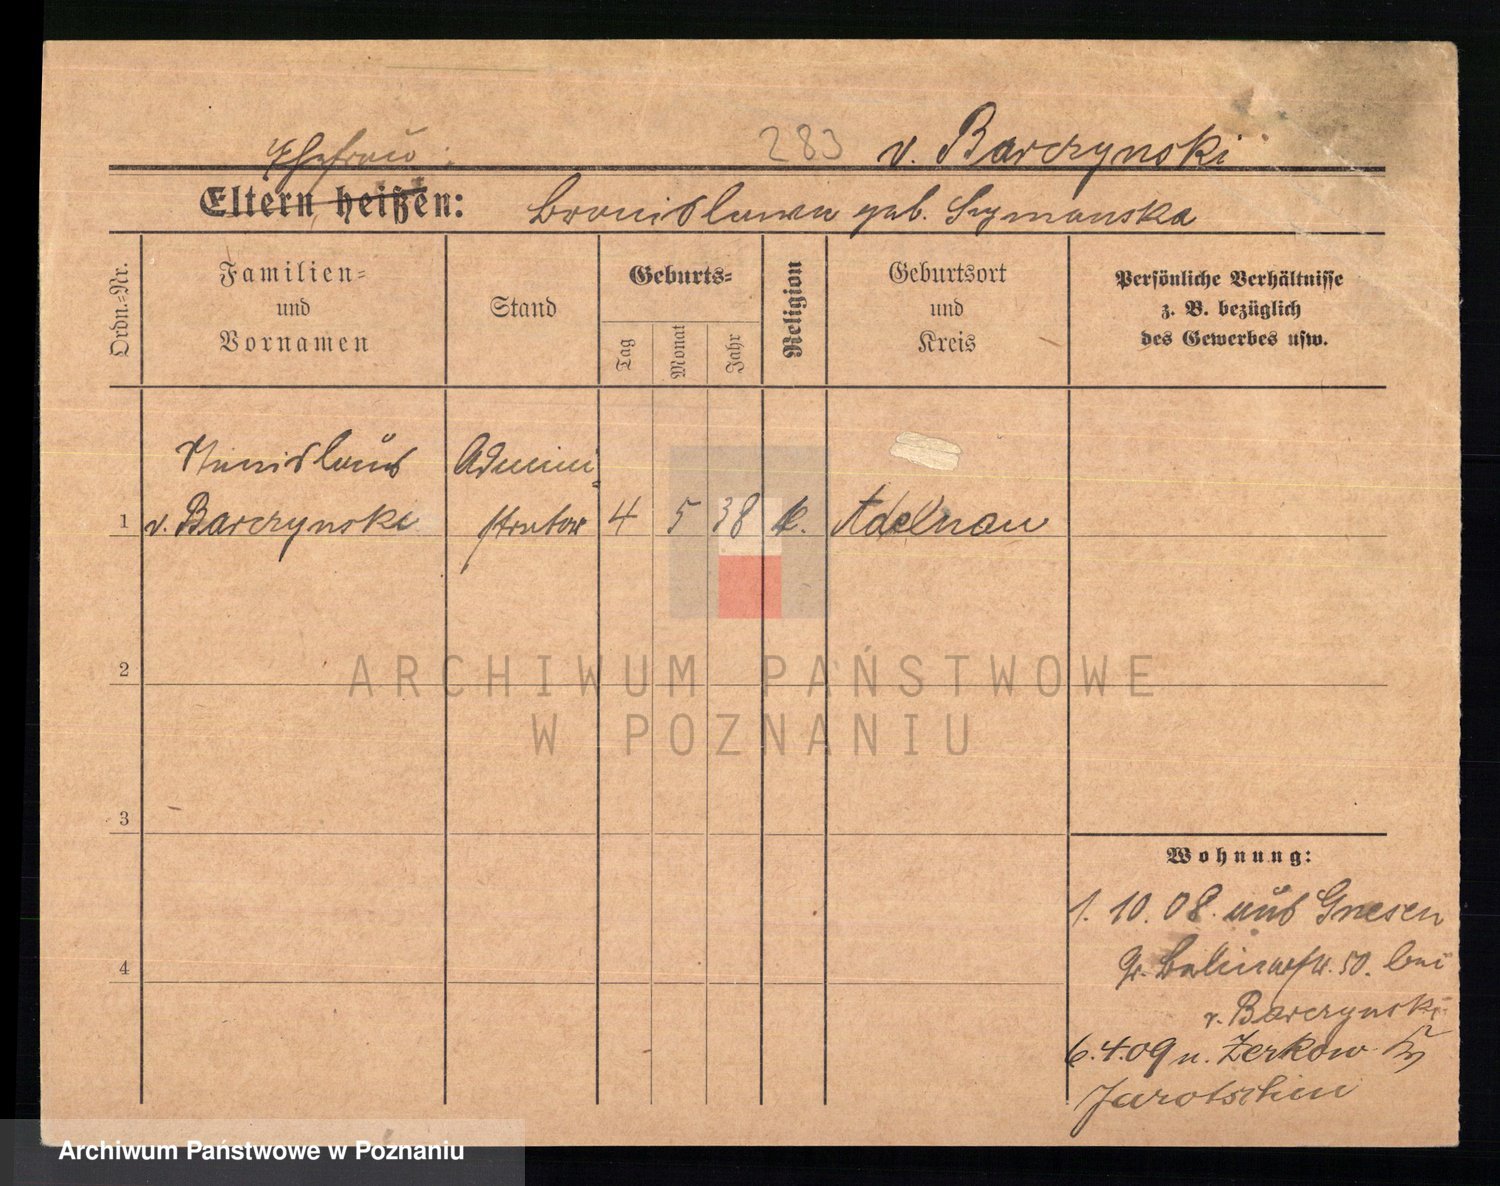 283 v. Barczynski
Ehefrau:
Eltern heißen: Bronislawa geb. Szymanska
Ordn.=Nr.
Familien=
und
Vornamen
Stand
Geburts=
Tag
Monat
Jahr
Religion
Geburtsort
und
Kreis
Persönliche Verhältnisse
z. B. bezüglich
des Gewerbes usw.
Stanislaus Admini=
1 v. Barczynski strator 4 5 38 k. Adelnau
2
3
4
Wohnung:
1. 10. 08. aus Gnesen
Gr. Berlinerstr. 50. bei
v. Barczynski
6. 4. 09 n. Zerkow
Jarotschin
ARCHIWUM PAŃSTWOWE
W POZNANIU
Archiwum Państwowe w Poznaniu